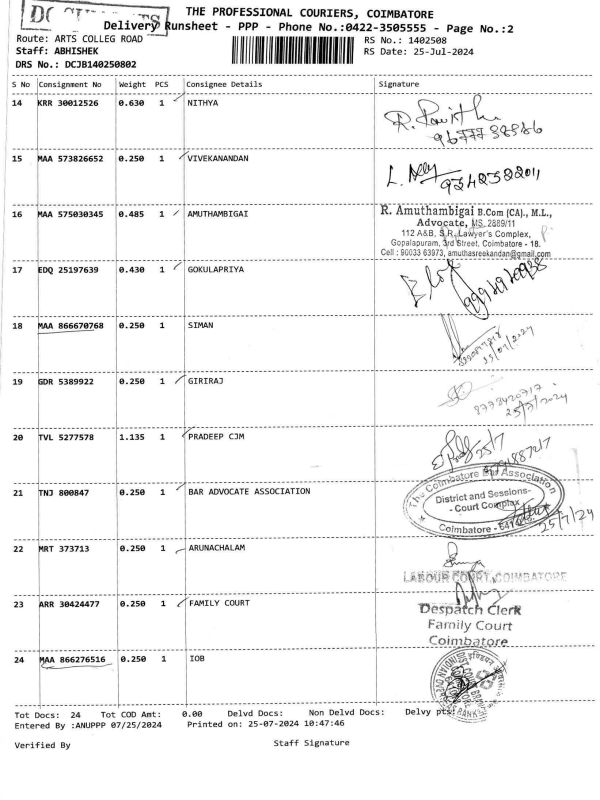 THE PROFESSIONAL COURIERS, COIMBATORE
Delivery Runsheet - PPP - Phone No.:0422-3505555 - Page No.:2
Route: ARTS COLLEG ROAD
RS No.: 1402508
Staff: ABHISHEK
RS Date: 25-Jul-2024
DRS No.: DCJB140250802
S No Consignment No Weight PCS Consignee Details Signature
14 KRR 30012526 0.630 1 NITHYA
15 MAA 573826652 0.250 1 VIVEKANANDAN
16 MAA 575030345 0.485 1 AMUTHAMBIGAI
R. Amuthambigai B.Com (CA)., M.L.,
Advocate, MS. 2889/11
112 A&B, S.R. Lawyer's Complex,
Gopalapuram, 3rd Street, Coimbatore - 18.
Cell : 90033 63973, amuthasreekandan@gmail.com
17 EDQ 25197639 0.430 1 GOKULAPRIYA
18 MAA 866670768 0.250 1 SIMAN
25/07/2024
19 GDR 5389922 0.250 1 GIRIRAJ
8773420717
25/7/2024
20 TVL 5277578 1.135 1 PRADEEP CJM
25/7
21 TNJ 800847 0.250 1 BAR ADVOCATE ASSOCIATION
The Coimbatore Bar Association
District and Sessions-
- Court Complex
Coimbatore -
25/7/24
22 MRT 373713 0.250 1 ARUNACHALAM
LABOUR COURT, COIMBATORE
23 ARR 30424477 0.250 1 FAMILY COURT
Despatch Clerk
Family Court
Coimbatore
24 MAA 866276516 0.250 1 IOB
Tot Docs: 24 Tot COD Amt: 0.00 Delvd Docs: Non Delvd Docs: Delvy pts:
Entered By :ANUPPP 07/25/2024 Printed on: 25-07-2024 10:47:46
Verified By Staff Signature